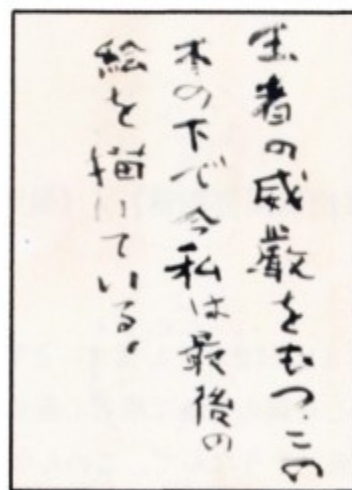 生者の威厳をもつ.この
木の下で今私は最後の
絵を描いている。